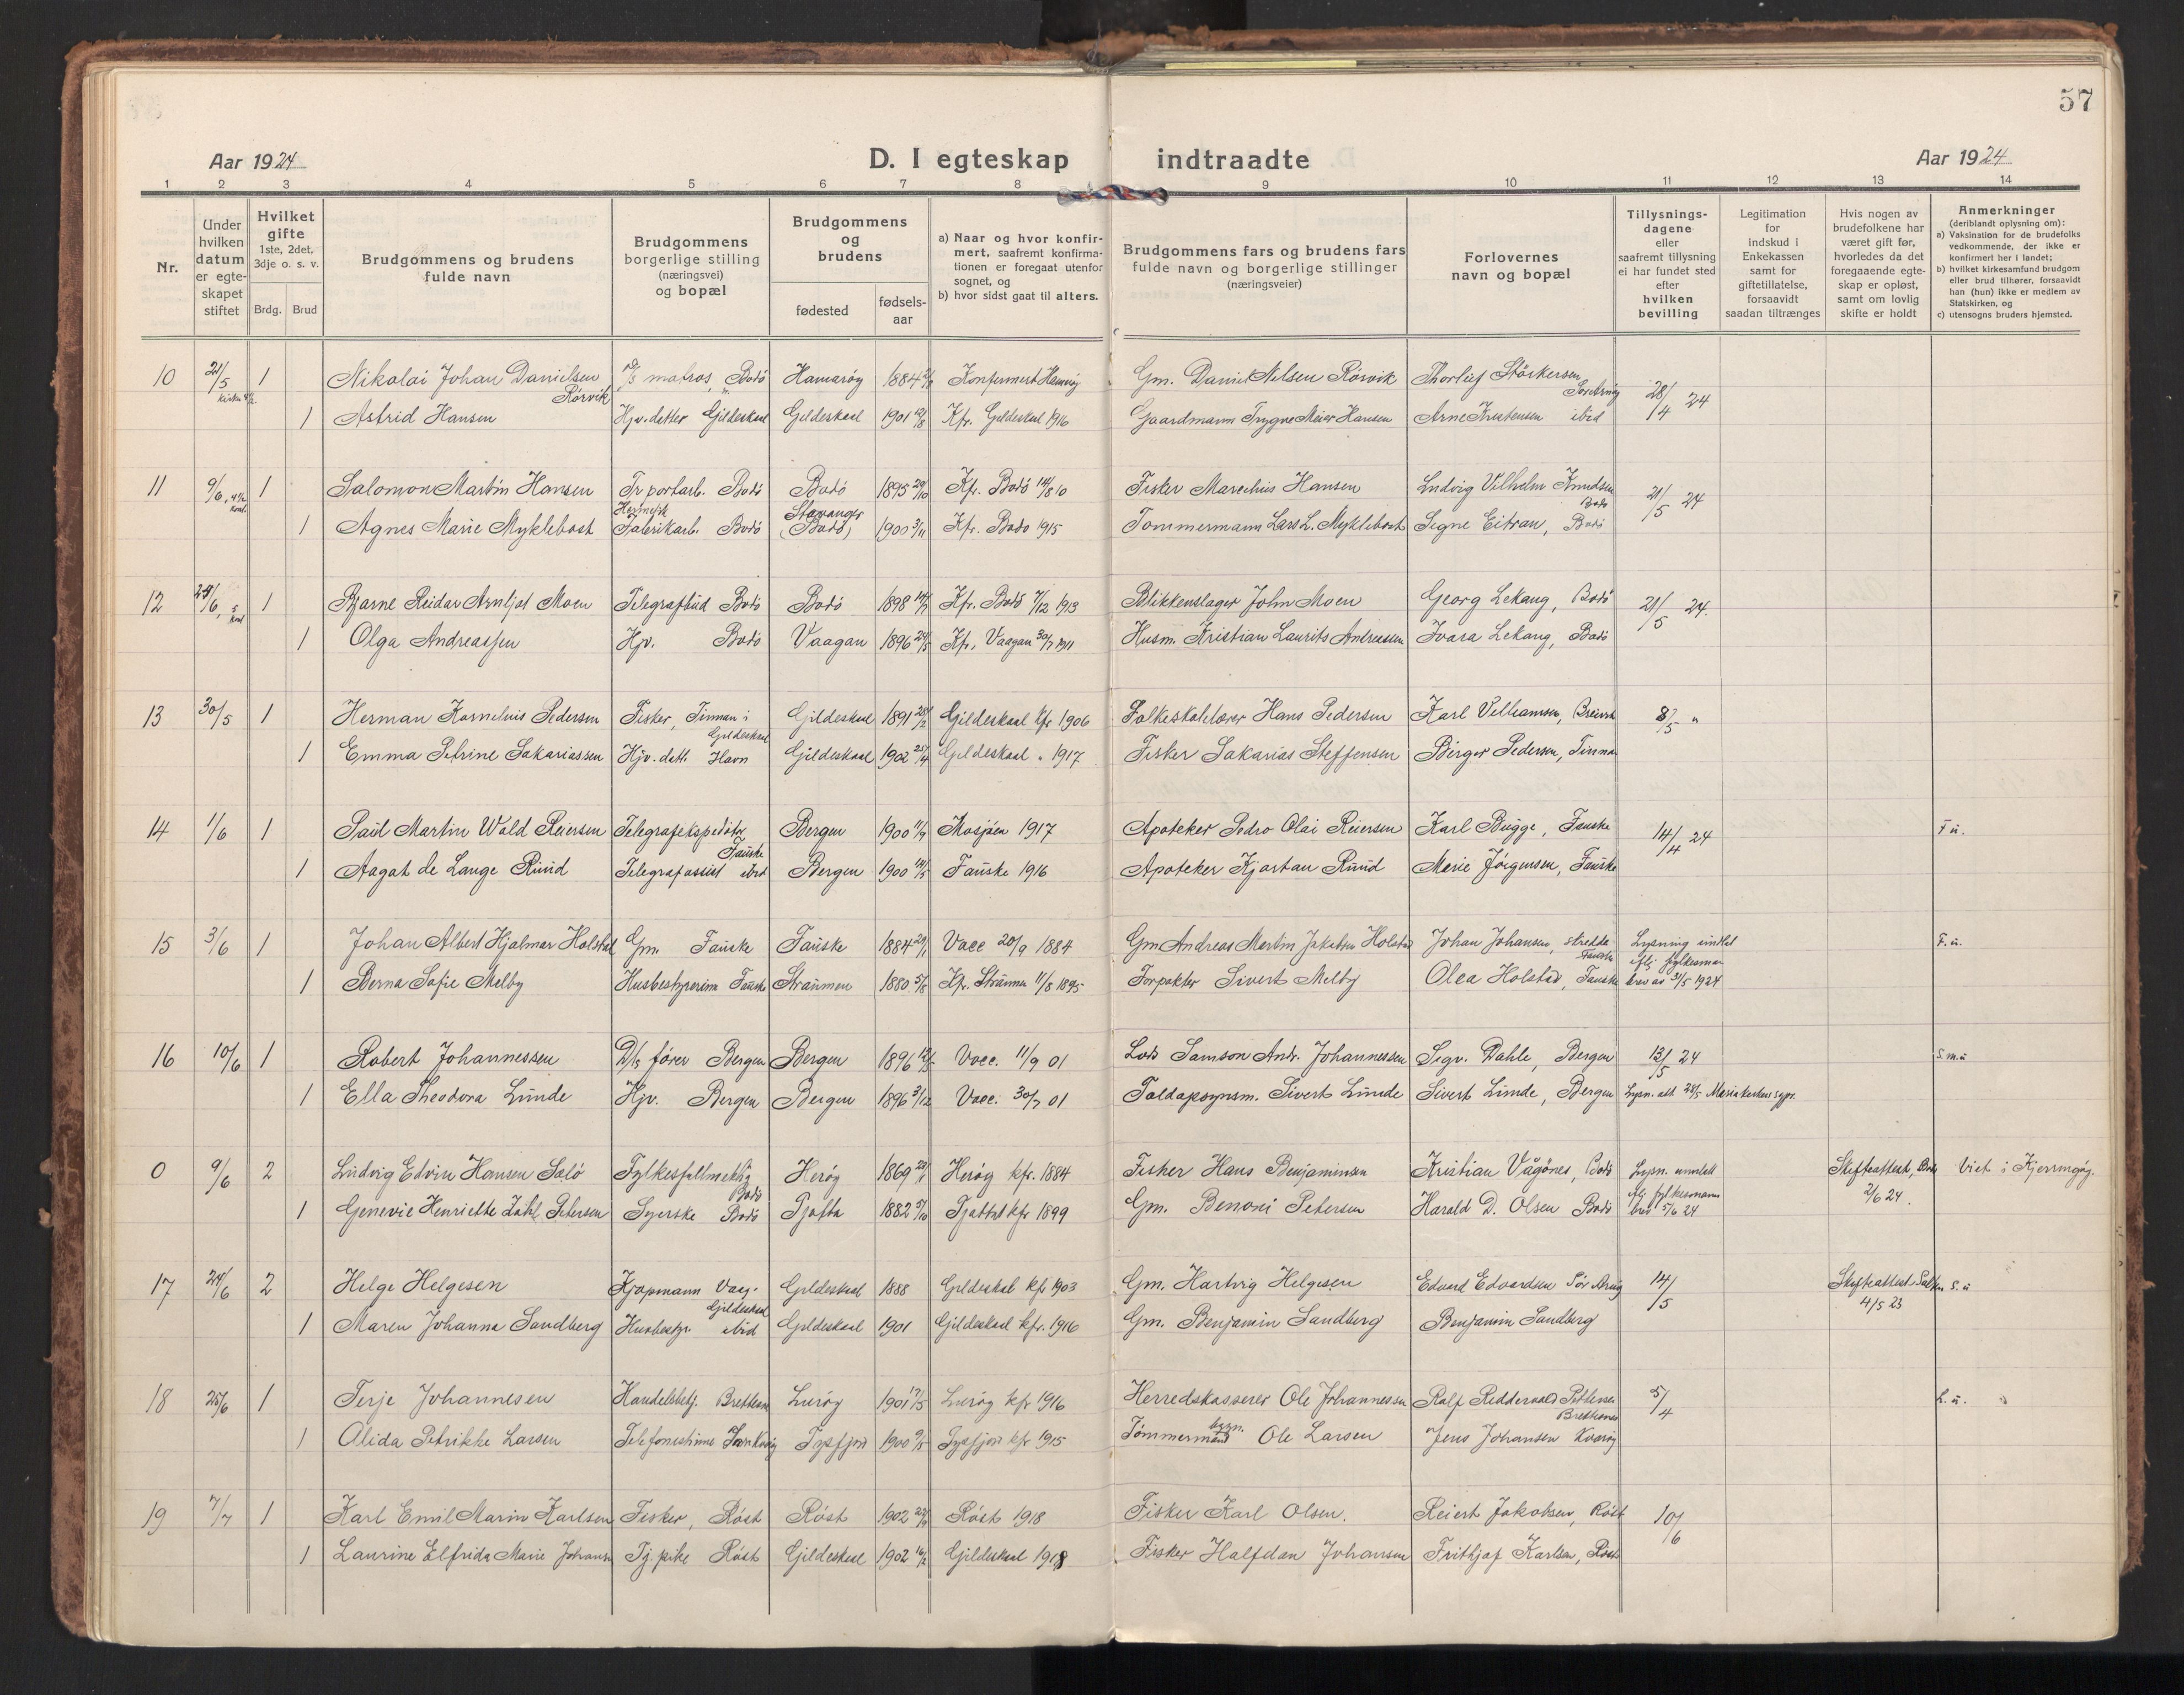 57
Aar 1924 D. I egteskap indtraadte Aar 1924
1 2 3 4 5 6 7 8 9 10 11 12 13 14
Nr.
Under hvilken datum er egte- skapet stiftet
Hvilket gifte 1ste, 2det, 3dje o. s. v. Brdg. Brud
Brudgommens og brudens fulde navn
Brudgommens borgerlige stilling (næringsvei) og bopæl
Brudgommens og brudens fødested fødsels- aar
a) Naar og hvor konfir- mert, saafremt konfirma- tionen er foregaat utenfor sognet, og b) hvor sidst gaat til alters.
Brudgommens fars og brudens fars fulde navn og borgerlige stillinger (næringsveier)
Forlovernes navn og bopæl
Tillysnings- dagene eller saafremt tillysning ei har fundet sted efter hvilken bevilling
Legitimation for indskud i Enkekassen samt for giftetillatelse, forsaavidt saadan tiltrænges
Hvis nogen av brudefolkene har været gift før, hvorledes da det foregaaende egte- skap er opløst, samt om lovlig skifte er holdt
Anmerkninger (deriblandt oplysning om): a) Vaksination for de brudefolks vedkommende, der ikke er konfirmert her i landet; b) hvilket kirkesamfund brudgom eller brud tilhører, forsaavidt han (hun) ikke er medlem av Statskirken, og c) utensogns bruders hjemsted.
10 21/5 1 Nikolai Johan Danielsen Rörvik matros, Bodö Hamaröy 1884 Konfirmert Hamröy Gm. Daniel Nilsen Rörvik Thorleif Störkersen Sör Arnöy 28/4 24
1 Astrid Hansen Hjv. datter Gildeskaal Gildeskaal 1901 12/8 Kfr. Gildeskaal 1916 Gaardmann Trygve Meier Hansen Arne Kristensen ibid
11 9/6 1 Salomon Martin Hansen Tr portarb. Bodö Bodö 1895 29/10 Kfr. Bodö 14/8 10 Fisker Marselius Hansen Ludvig Vilhelm Knudsen Bodö 21/5 24
1 Agnes Marie Myklebost Hermetik Fabrikarb. Bodö Stavanger (Bodö) 1900 3/11 Kfr. Bodö 1915 Tømmermann Lars L. Myklebost Signe Eitran, Bodö
12 24/6 1 Bjarne Reidar Arnljot Moen Telegrafbud Bodö Bodö 1898 14/7 Kfr. Bodö 7/12 1913 Blikkenslager John Moen Georg Lekang, Bodö 21/5 24.
1 Olga Andreassen Hjv. Bodö Vaagan 1896 24/5 Kfr. Vaagan 30/7 1911 Husm. Kristian Laurits Andreassen Ivara Lekang, Bodö
13 30/5 1 Herman Kornelius Pedersen Fisker, Finnan i Gildeskaal Gildeskaal 1891 28/2 Gildeskaal kfr 1906 Folkeskolelærer Hans Pedersen Karl Velliamsen, Breivik 8/5 "
1 Emma Petrine Sakariassen Hjv. datt. Havn Gildeskaal 1902 25/4 Gildeskaal " 1917 Fisker Sakarias Steffensen Birger Pedersen, Finnan
14 1/6 1 Paul Martin Wold Reiersen Telegrafekspeditör Fauske Bergen 1900 11/9 Mosjöen 1917 Apoteker Pedro Olai Reiersen Karl Bugge, Fauske 14/4 24 F u.
1 Aagot de Lange Ruud Telegrafassist ibid Bergen 1900 14/5 Fauske 1916 Apoteker Kjartan Ruud Marie Jörgensen, Fauske
15 3/6 1 Johan Albert Hjalmar Holstad Gm. Fauske Fauske 1884 29/1 Vacc 20/9 1884 Gm Andreas Martin Jakobsen Holstad Johan Johansen, stredda Fauske Lysning undlat iflg fylkesman F. u.
1 Berna Sofie Melby Husbestyrerinne Fauske Straumen 1880 5/8 Kfr. Straumen 11/8 1895 Forpakter Sivert Melby Olea Holstad, Fauske brev av 31/5 1924
16 10/6 1 Robert Johannessen D/s förer Bergen Bergen 1896 12/5 Vacc. 11/9 01 Lods Samson Andr. Johannessen Sigv. Dahle, Bergen 13/5 24 S. m. u
1 Ella Theodora Lunde Hjv. Bergen Bergen 1896 3/12 Vacc. 30/7 01 Toldopsynsm. Sivert Lunde Sivert Lunde, Bergen Lysn. att 28/5 Mariakirkens sgpr.
0 9/6 2 Ludvig Edvin Hansen Solö Fylkesfullmektig Bodö Heröy 1869 29/1 Heröy kfr. 1884 Fisker Hans Benjaminsen Kristian Vågönes, Bodö Lysn. unnlatt Skifteattest, Bodö 2/6 24. Viet i Kjerringöy.
1 Genevie Henriette Zahl Petersen Syerske Bodö Tjøtta 1882 5/10 Tjøtta kfr 1899 Gm. Benoni Petersen Harald D. Olsen Bodö iflg fylkesmanns brev 5/6 24
17 24/6 2 Helge Helgesen Kjøpmann Vaag. Gildeskaal Gildeskaal 1888 Gildeskal kfr 1903 Gm. Hartvig Helgesen Edvard Edvardsen Sör Arnöy 14/5 Skifteattest Salten 4/5 23 S. u
1 Maren Johanna Sandberg Husbestyr. ibid Gildeskaal 1901 Gildeskaal kfr. 1916 Gm. Benjamin Sandberg Benjamin Sandberg
18 25/6 1 Terje Johannesen Handelsbetj. Bretteson Luröy 1901 Luröy kfr 1916 Herredskasserer Ole Johannessen Rolf Ridderwold Pettersen 5/4 L. u.
1 Alida Petrikke Larsen Telefonistinne Tysfjord 1900 9/5 Tysfjord kfr 1915 Tømmermand Ole Larsen Jens Johansen Kvaröy
19 7/7 1 Karl Emil Marin Karlsen Fisker, Röst Röst 1902 Röst 1918 Fisker Karl Olsen. Reiert Jakobsen, Röst 10/6
1 Laurine Elfrida Marie Johansen Tj. pike Röst Gildeskaal 1902 Gildeskaal 1918 Fisker Halfdan Johansen Frithjof Karlsen, Röst